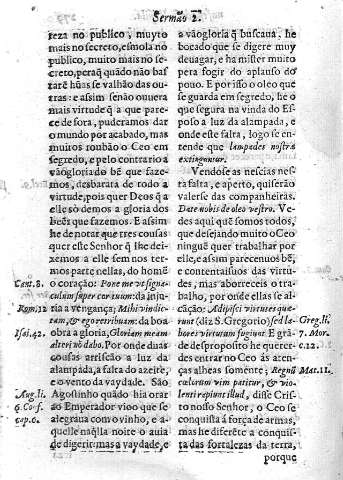 Sermão 2.
reza no publico, muyto
mais no secreto, esmola no
publico, muito mais no se-
creto, peraq̃ quãdo não bas
tarẽ hũas se valhão das ou-
tras: e assim senão ouvera
mais virtude q̃ a que pare-
ce de fora, pudcramos dar
o mundo por acabado, mas
muitos roubão o Ceo em
segredo, e pelo contrario a
vãogloria do bẽ que faze-
mos, desbarata de todo a
virtude, pois quer Deos q̃ a
elle só demos a gloria dos
bẽes que fazemos. E assim
he de notar que tres cousas
quer este Senhor q̃ lhe dei-
xemos a elle sem nos ter-
mos parte nellas, do homẽ
Cant. 8. o coração: Pone me ut signa-
culum super cor tuum: da inju-
Rom. 12 ria a vengança; Mihi vindic-
tam, & ego retribuam: da boa
Isai. 42. obra a gloria, Gloriam meam
alteri nõ dabo. Por onde duas
cousas arriscão a luz da
alampada, a falta do azeite,
e o vento da vaydade. São
Aug. li. Agostinho quãdo hia orar
9. Cof. ao Emperador vioo que se
cap. 6. alegrava com o vinho, e a-
quelle naq̃lla noite o auia
de digerir: mas a vaydade, e
a vãogloria q̃ buscaua, he
bocado que se digere muy
deuagar, e ha mister muito
pera fogir do aplauso do
pouo. E por isso o oleo que
se guarda em segredo, he o
que segura na vinda do Es-
poso a luz da alampada, e
onde este falta, logo se en-
tende que lampades nostræ
extinguntur.
Vendose as nescias nes-
ta falta, e aperto, quiserão
valerse das companheiras.
Date nobis de oleo vestro. Ve-
des aqui quẽ somos todos,
que desejando muito o Ceo
ninguẽ quer trabalhar por
elle, e assim parecenuos bẽ,
e contentaisuos das virtu-
des, mas aborreceis o tra-
balho, por onde ellas se al-
cação: Adipisci virtutes que-
runt (diz S. Gregorio) sed la- Greg. li.
bores virtutum fugiunt. E grã- 7. Mor.
de desproposito he querer- c. 12.
des entrar no Ceo ás aten-
ças alheas somente; Regnũ Mat. 11.
cælorum vim patitur, & vio-
lenti rapiunt illud, disse Cris-
to nosso Senhor, o Ceo se
conquista á força de armas,
mas he diferẽte a conquis-
ta das fortalezas da terra,
porque